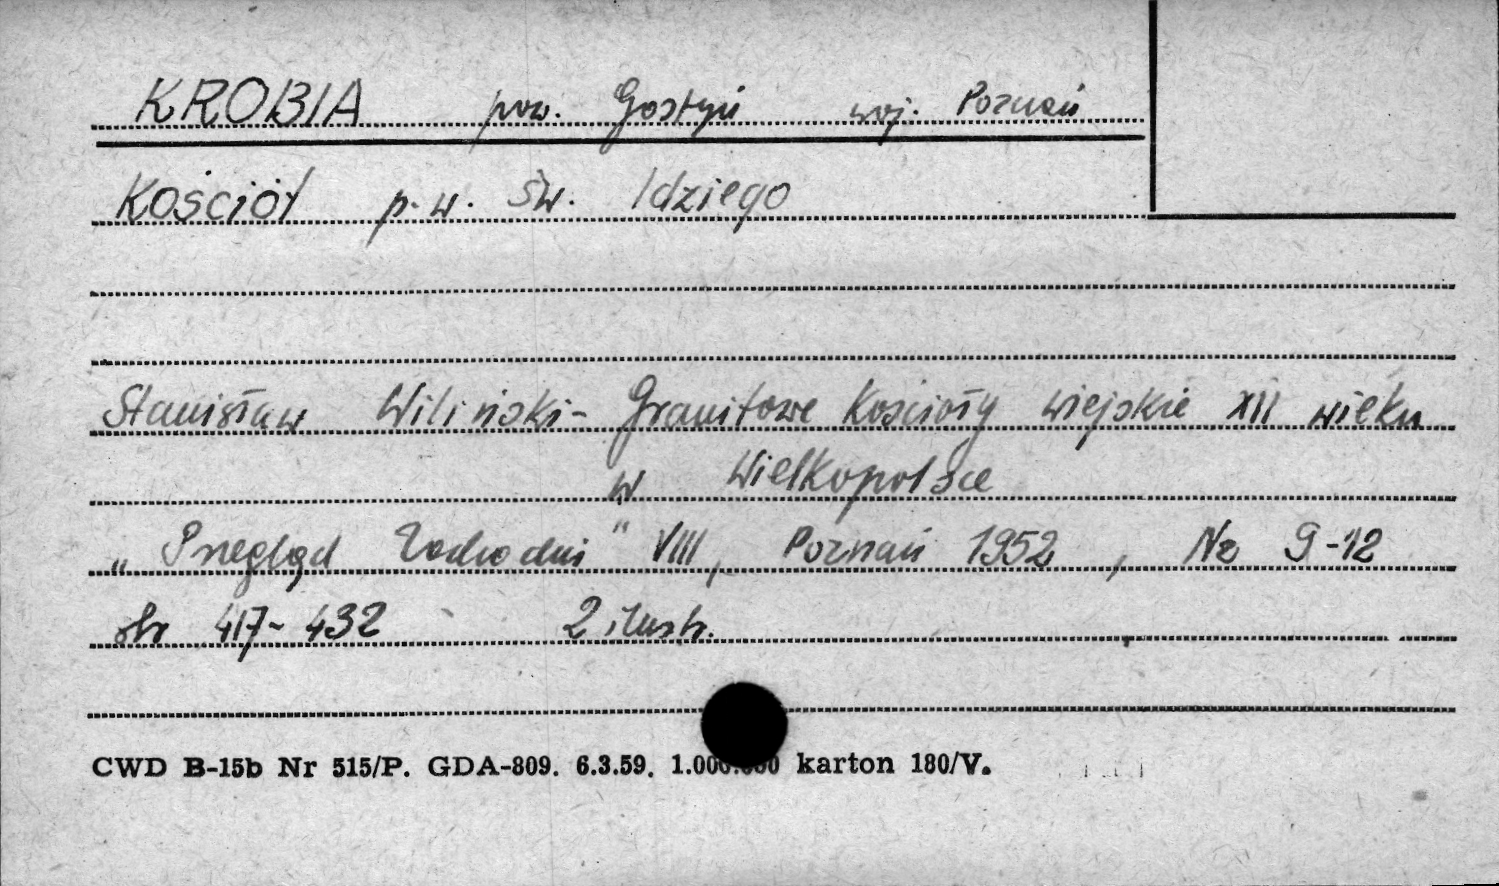 KROBIA pow. Gostyń woj. Poznań
Kościół p.w. św. Idziego
Stanisław Wiliński - Granitowe kościoły wiejskie XII wieku
w Wielkopolsce
„Przegląd Zachodni" VIII, Poznań 1952, Nr 9-12
str 417-432 2 ilustr.
CWD B-15b Nr 515/P. GDA-809. 6.3.59. 1.000.000 karton 180/V.